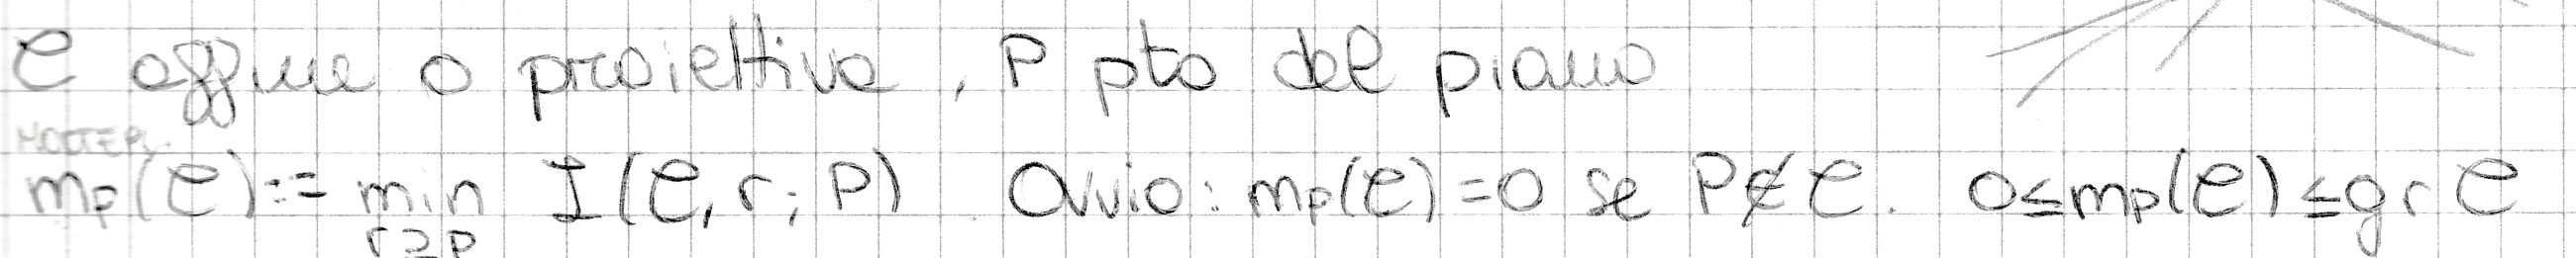 C affine o proiettiva, P pto del piano
MOLTEPL.
m_P(C) := min_{r∋P} I(C, r; P) Ovvio: m_P(C) = 0 se P∉C. 0 ≤ m_P(C) ≤ gr C